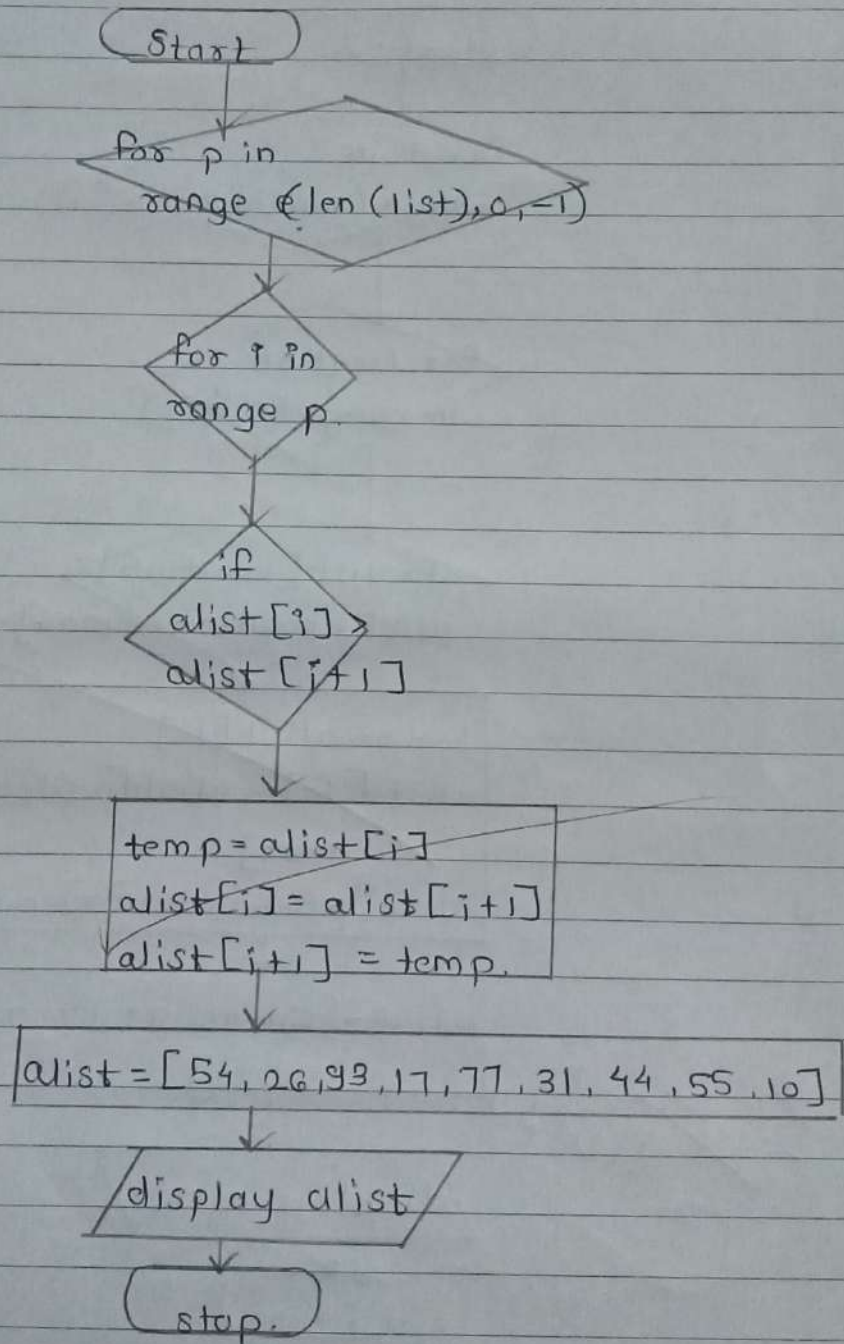 Start
for p in
range (len (list), 0, -1)
for i in
range p.
if
alist [i] >
alist [i+1]
temp = alist[i]
alist[i] = alist[i+1]
alist[i+1] = temp.
alist = [54, 26, 93, 17, 77, 31, 44, 55, 10]
display alist
stop.